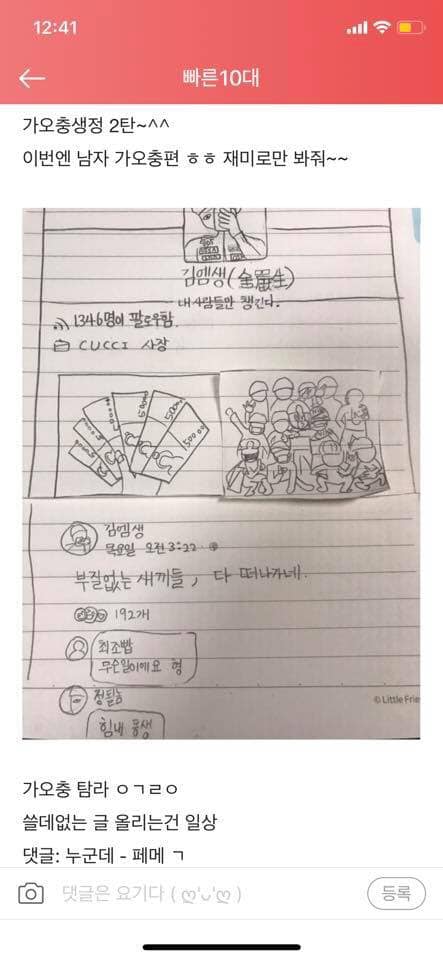 12:41
빠른10대
가오충생정 2탄~^^
이번엔 남자 가오충편 ㅎㅎ 재미로만 봐줘~~
김엠생
내 사람들만 챙긴다.
1346명이 팔로우함.
CUCCI 사장
50000
김엠생
목요일 오전 3:22 ·
부질없는 새끼들, 다 떠나가네.
192개
최조빱
무슨일이에요 형
힘내 동생
© Little Frie
가오충 탐라 ㅇㄱㄹㅇ
쓸데없는 글 올리는건 일상
댓글: 누군데 - 페메 ㄱ
댓글은 요기다 ( ღ'ᴗ'ღ )
등록